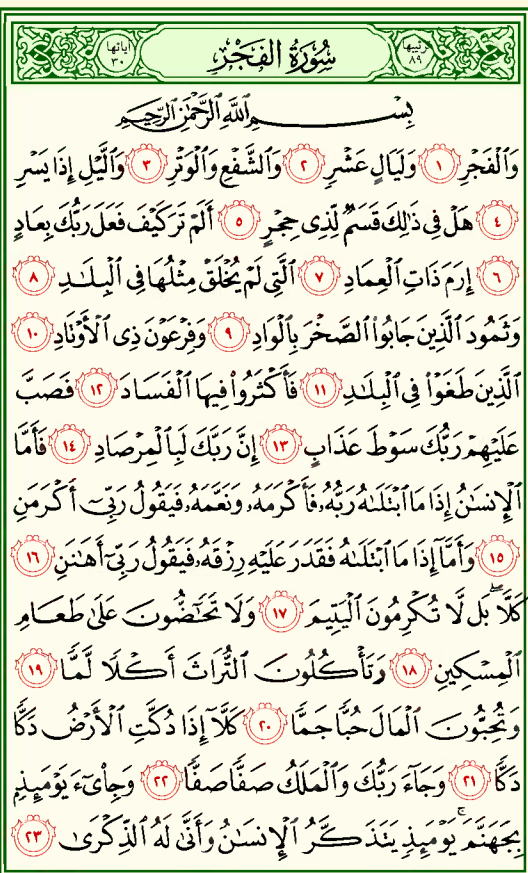 آياتها ٣٠ سُورَةُ الفَجْرِ ترتيبها ٨٩
بِسْمِ ٱللَّهِ ٱلرَّحْمَٰنِ ٱلرَّحِيمِ
وَٱلْفَجْرِ ١ وَلَيَالٍ عَشْرٍ ٢ وَٱلشَّفْعِ وَٱلْوَتْرِ ٣ وَٱلَّيْلِ إِذَا يَسْرِ
٤ هَلْ فِي ذَٰلِكَ قَسَمٌ لِّذِي حِجْرٍ ٥ أَلَمْ تَرَ كَيْفَ فَعَلَ رَبُّكَ بِعَادٍ
٦ إِرَمَ ذَاتِ ٱلْعِمَادِ ٧ ٱلَّتِي لَمْ يُخْلَقْ مِثْلُهَا فِي ٱلْبِلَٰدِ ٨
وَثَمُودَ ٱلَّذِينَ جَابُوا۟ ٱلصَّخْرَ بِٱلْوَادِ ٩ وَفِرْعَوْنَ ذِي ٱلْأَوْتَادِ ١٠
ٱلَّذِينَ طَغَوْا۟ فِي ٱلْبِلَٰدِ ١١ فَأَكْثَرُوا۟ فِيهَا ٱلْفَسَادَ ١٢ فَصَبَّ
عَلَيْهِمْ رَبُّكَ سَوْطَ عَذَابٍ ١٣ إِنَّ رَبَّكَ لَبِٱلْمِرْصَادِ ١٤ فَأَمَّا
ٱلْإِنسَٰنُ إِذَا مَا ٱبْتَلَىٰهُ رَبُّهُۥ فَأَكْرَمَهُۥ وَنَعَّمَهُۥ فَيَقُولُ رَبِّيٓ أَكْرَمَنِ
١٥ وَأَمَّآ إِذَا مَا ٱبْتَلَىٰهُ فَقَدَرَ عَلَيْهِ رِزْقَهُۥ فَيَقُولُ رَبِّيٓ أَهَٰنَنِ ١٦
كَلَّا ۖ بَل لَّا تُكْرِمُونَ ٱلْيَتِيمَ ١٧ وَلَا تَحَٰٓضُّونَ عَلَىٰ طَعَامِ
ٱلْمِسْكِينِ ١٨ وَتَأْكُلُونَ ٱلتُّرَاثَ أَكْلًا لَّمًّا ١٩
وَتُحِبُّونَ ٱلْمَالَ حُبًّا جَمًّا ٢٠ كَلَّآ إِذَا دُكَّتِ ٱلْأَرْضُ دَكًّا
دَكًّا ٢١ وَجَآءَ رَبُّكَ وَٱلْمَلَكُ صَفًّا صَفًّا ٢٢ وَجِا۟ىٓءَ يَوْمَئِذٍۭ
بِجَهَنَّمَ ۚ يَوْمَئِذٍ يَتَذَكَّرُ ٱلْإِنسَٰنُ وَأَنَّىٰ لَهُ ٱلذِّكْرَىٰ ٢٣